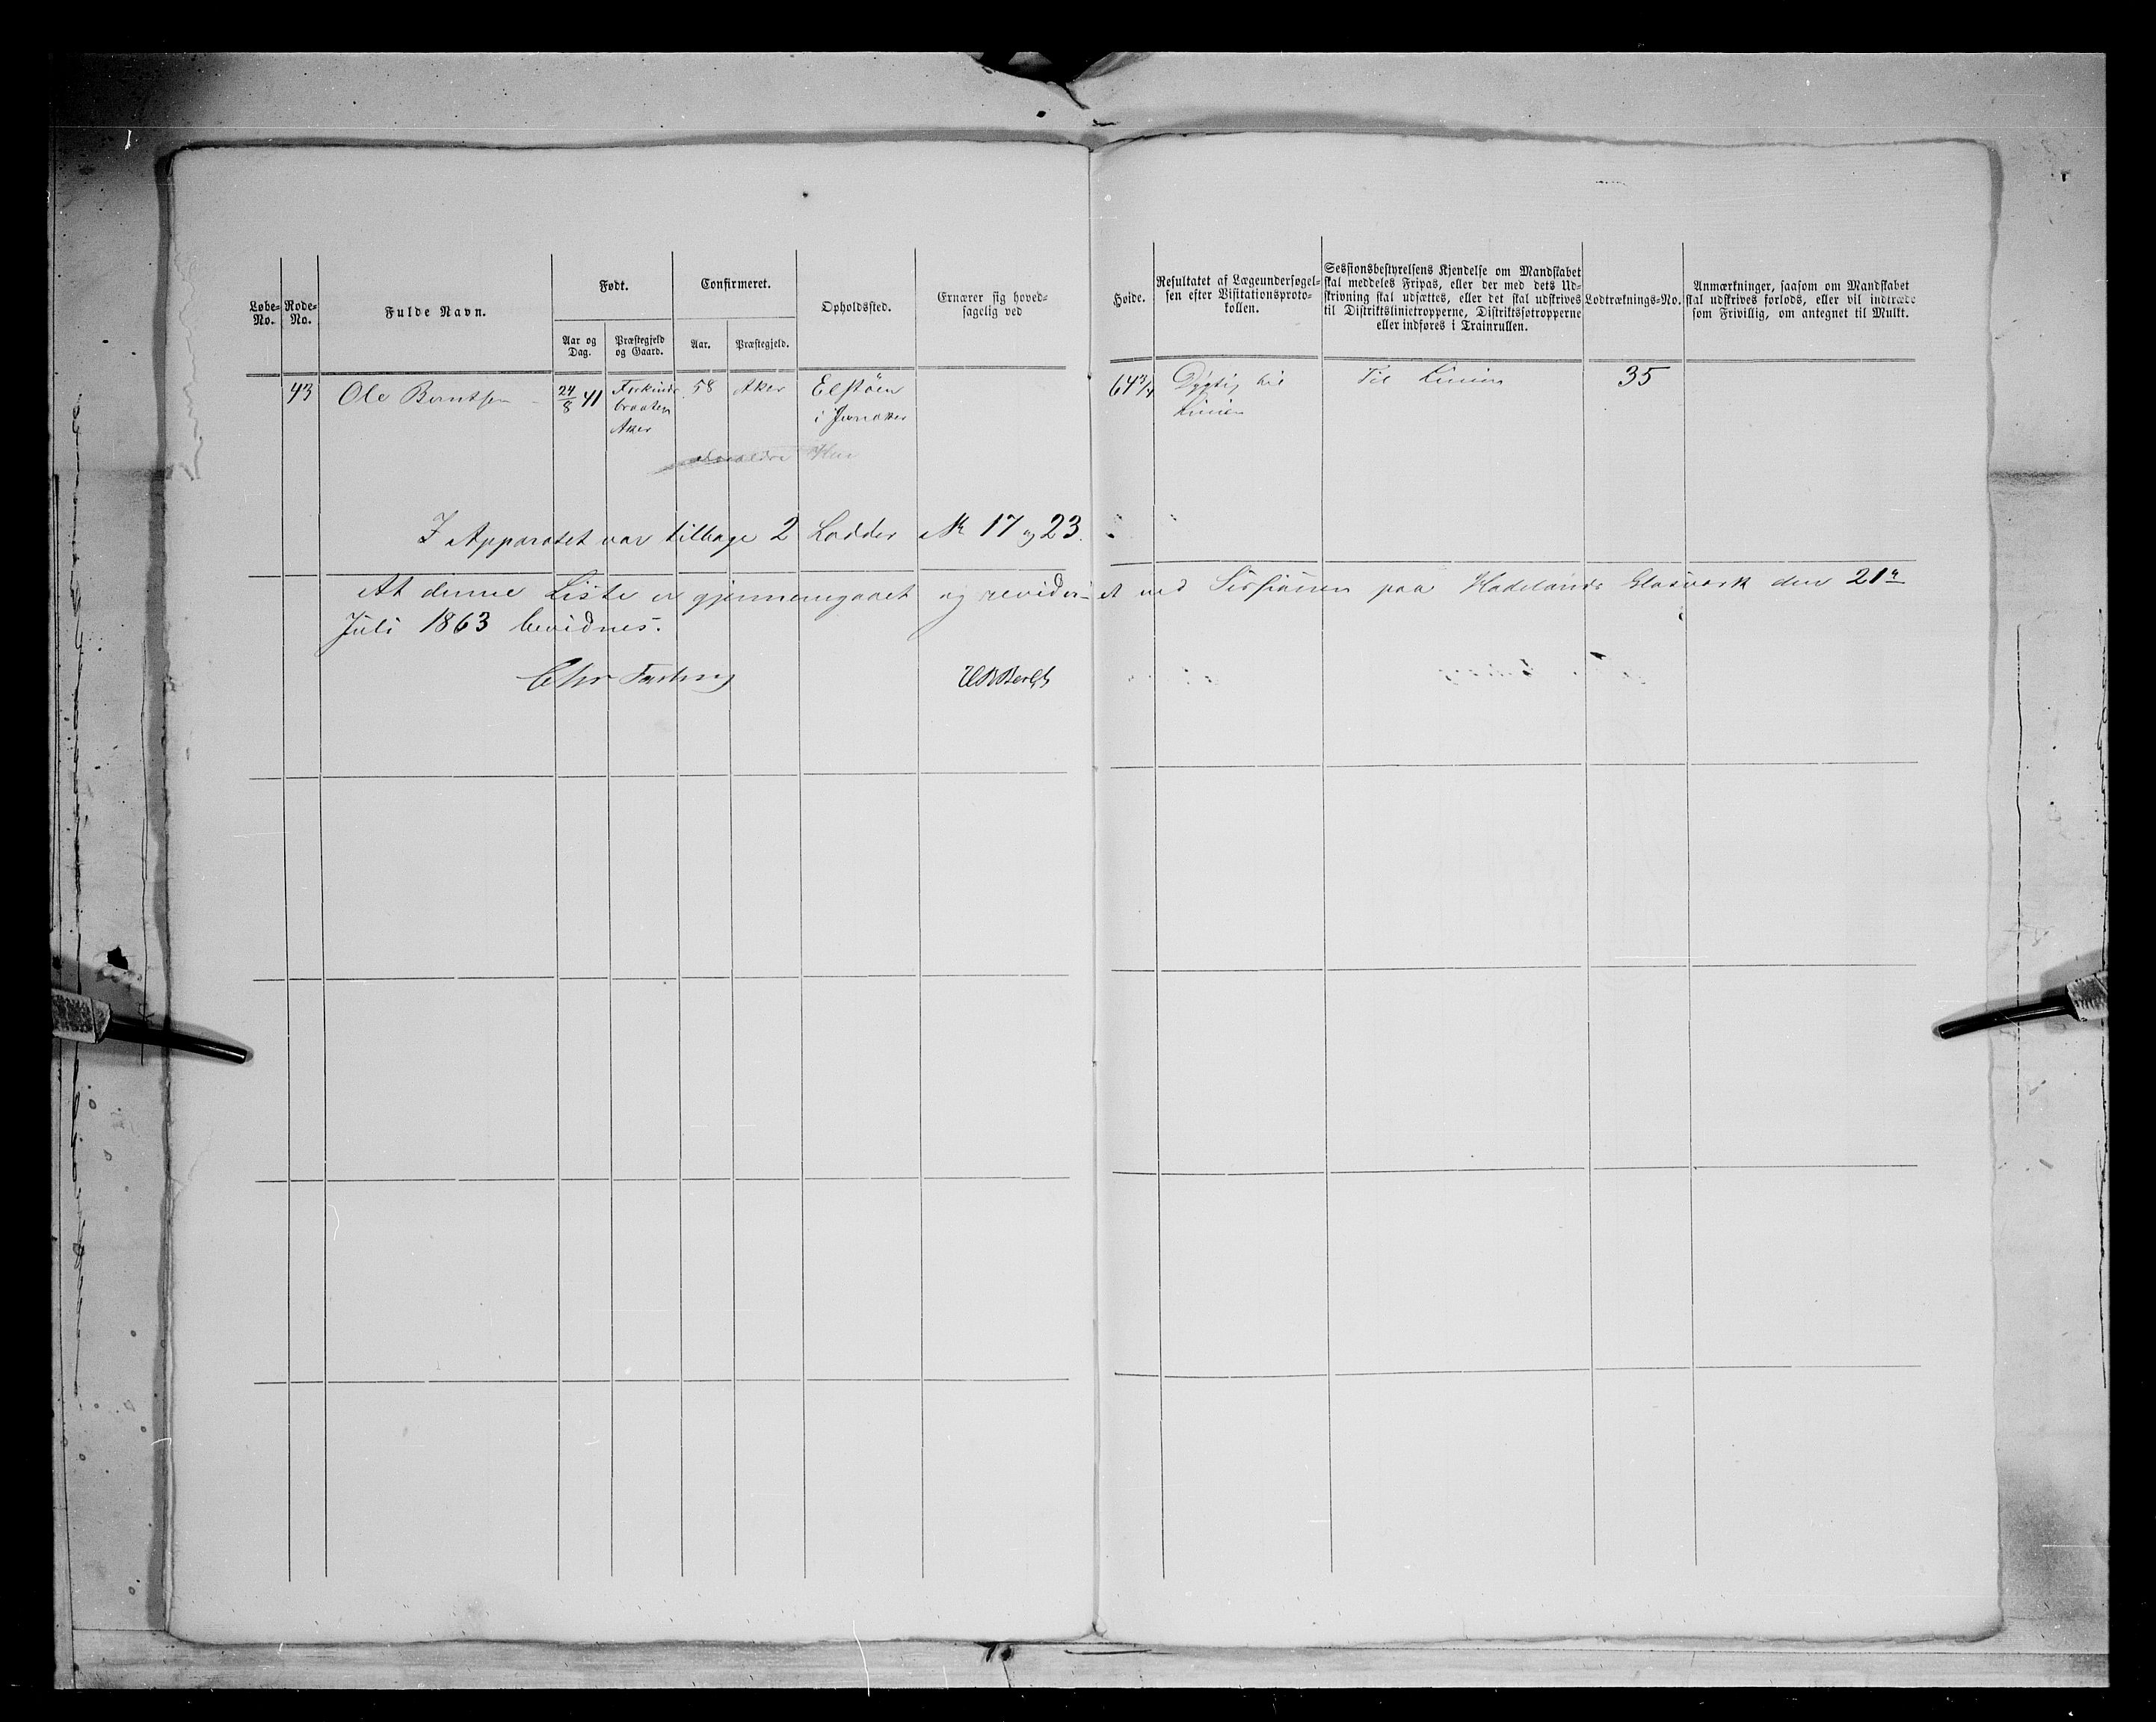 Løbe-No.
Rode-No.
Fulde Navn.
Født.
Aar og Dag.
Præstegjeld og Gaard.
Confirmeret.
Aar.
Præstegjeld.
Opholdssted.
Ernærer sig hoved-
sagelig ved
Høide.
Resultatet af Lægeundersøgel-
sen efter Visitationsproto-
kollen.
Sessionsbestyrelsens Kjendelse om Mandskabet
skal meddeles Fripas, eller der med dets Ud-
skrivning skal udsættes, eller det skal udskrives
til Distriktslinietropperne, Distriktssøtropperne
eller indføres i Trainrullen.
Lodtræknings-No.
Anmærkninger, saasom om Mandskabet
skal udskrives forlods, eller vil indtræde
som Frivillig, om antegnet til Mulkt.
43 Ole Berntsen 24/8 41
braaten
Aker
58 Aker
Elstöen
i Jevnaker
64 3/4
Dygtig til
Linien
Til Linien
35
I Apparatet var tilbage 2 Lodder No 17 og 23.
At denne Liste er gjennemgaaet og revideret ved Sessionen paa Hadelands Glasværk den 21de
Juli 1863 bevidnes.
Chr